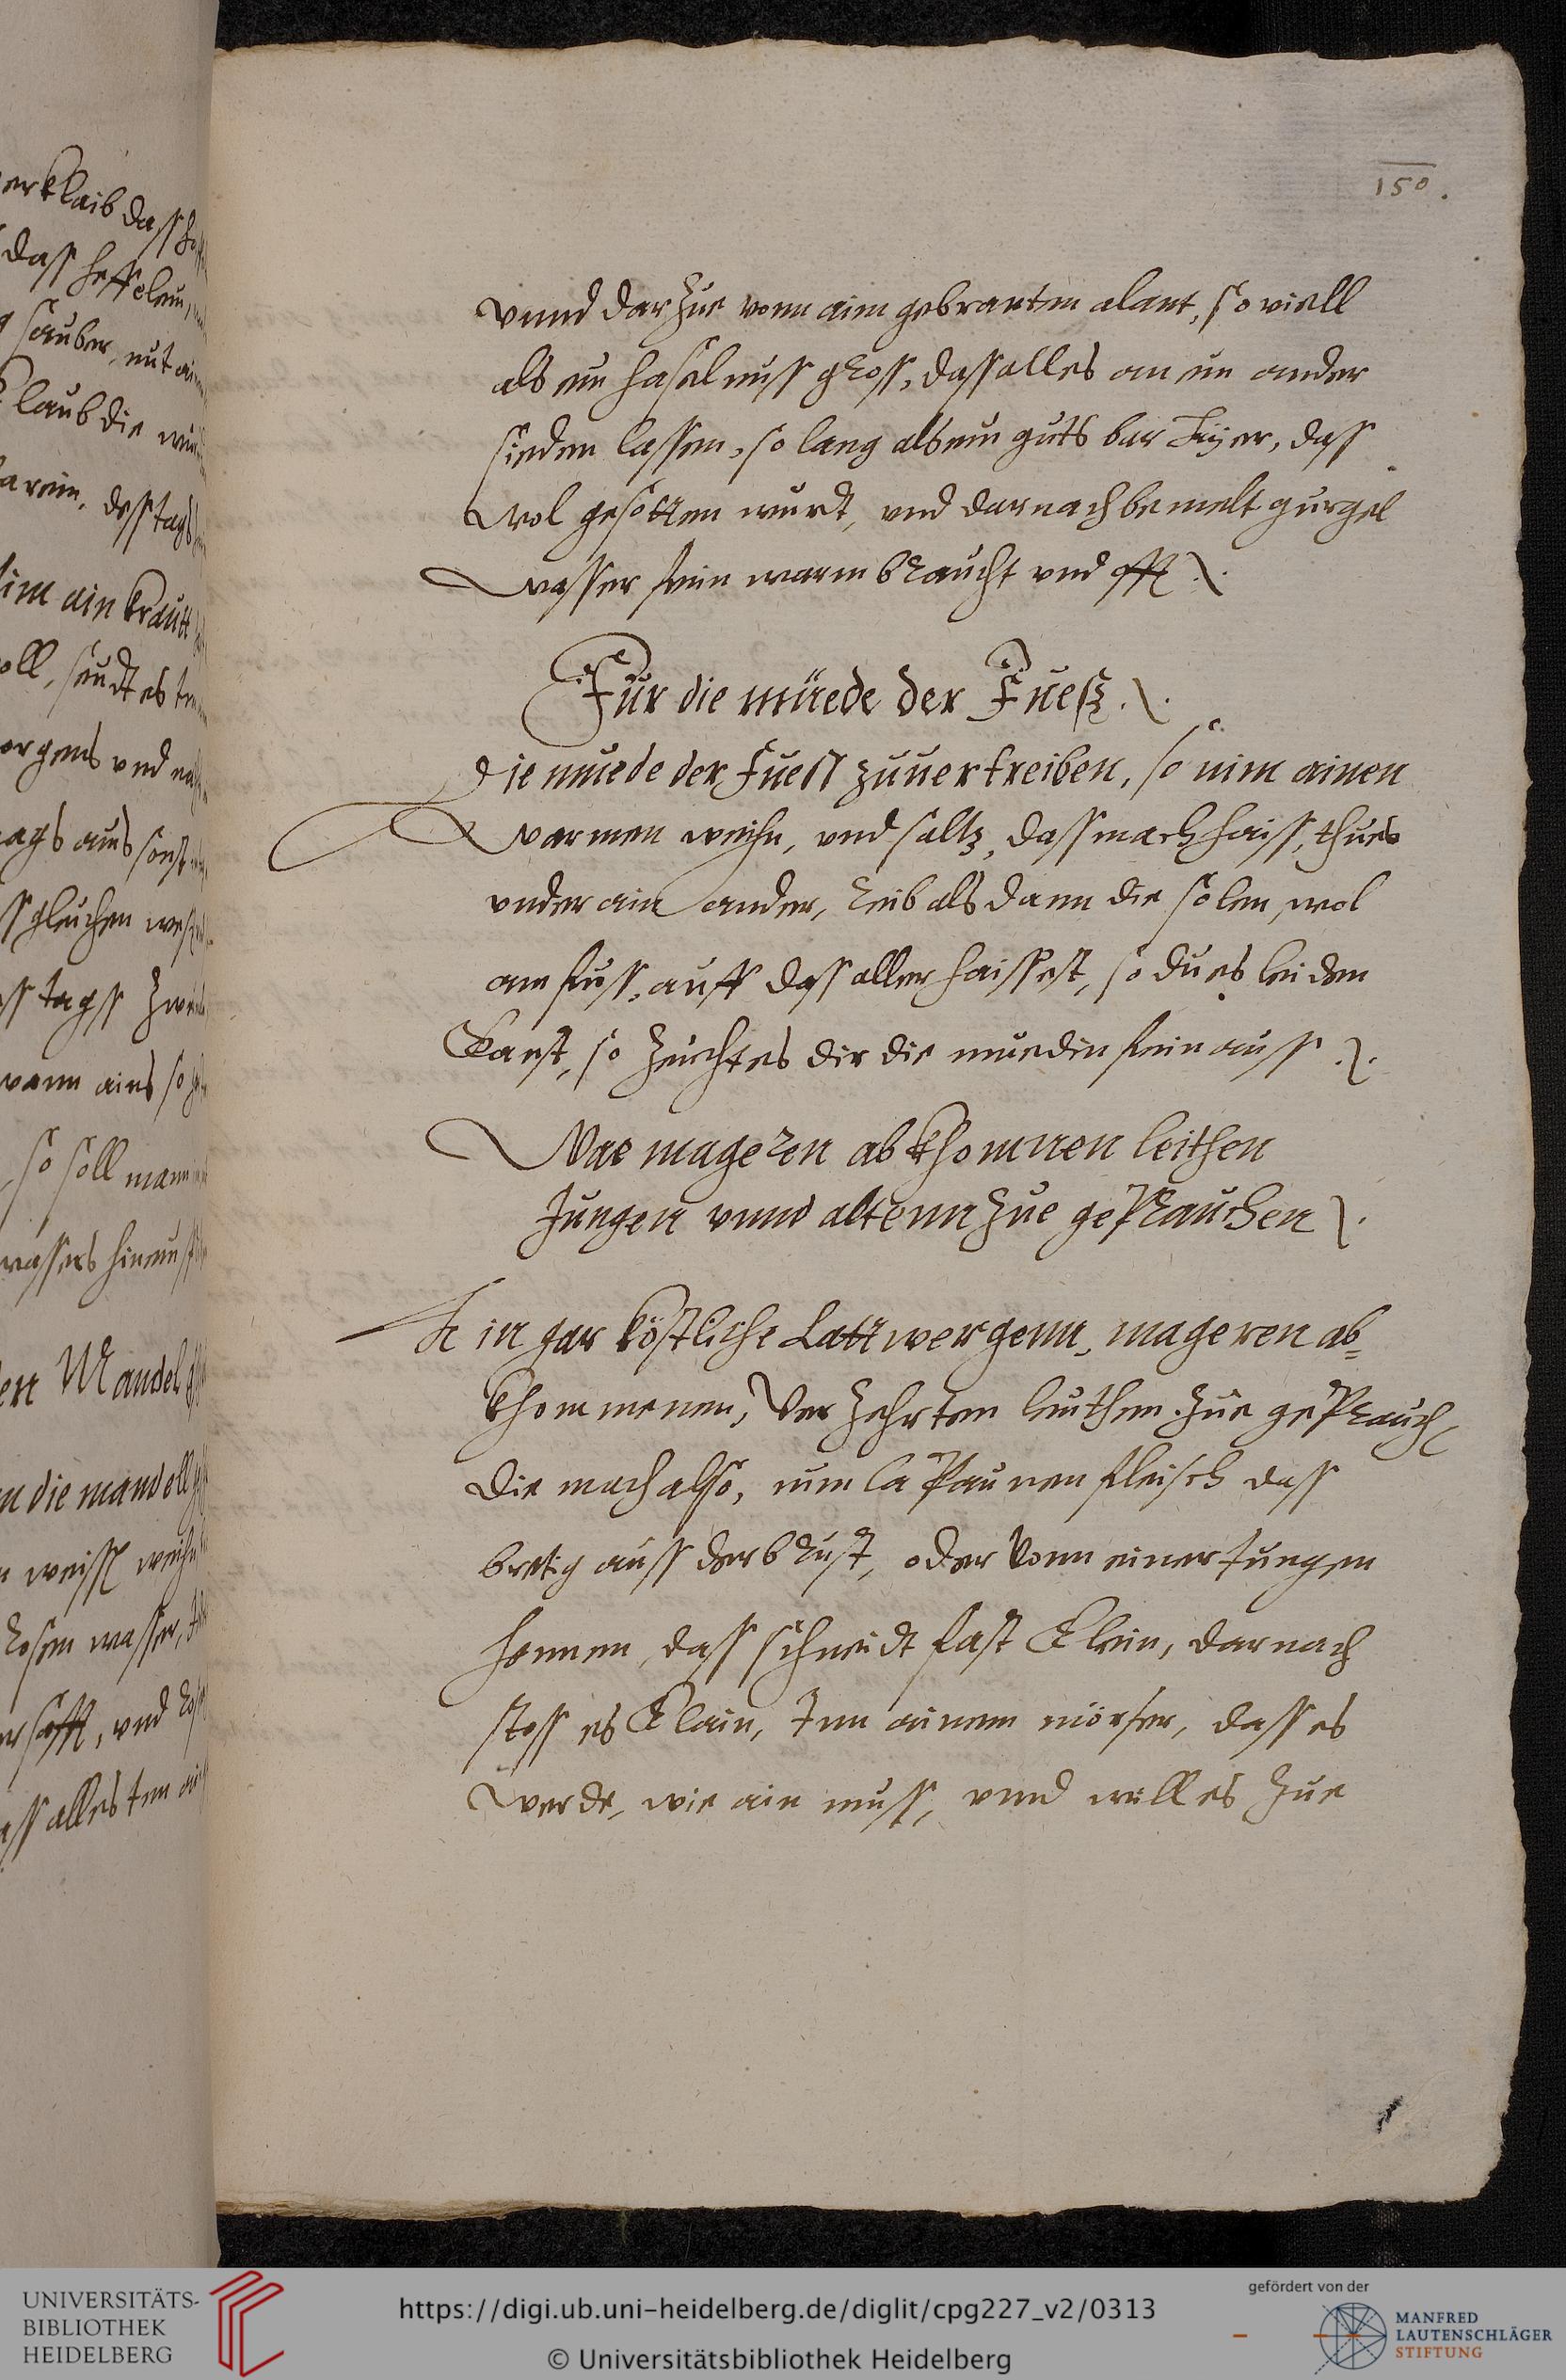 150.
vnnd dar Zue vonn aim gebranten alant, so viell
als ein haselnuss gross, dass alles an ein ander
sieden lassen, so lang als ein guts bar Eÿer, dass
wol gesotten wurdt, vnd darnach bemelt gurgel
wasser fein warm braucht vnd offt
Für die müede der Fuesz
Die muede der fuess zuuertreiben, so nim ainen
warmen weihn, vnd saltz, dass mach haiss, thues
vnder ain ander, reib als dann die solen, wol
am fuss, auff dass aller haissest, so du es leiden
kanst, so Zeucht es dir die muedin fein auss
Vor mageren abkhomnen leithen
Jungen vnnd altenn Zue geprauchen
Ein gar köstliche Lattwergenn, mageren ab=
khommenen, Verzehrten leuthen Zue geprauch
die mach also, nim Capaunen fleisch dass
bretig auss der brust, oder vonn einer Jungen
hennen, dass schneidt fast klein, darnach
stoss es klain, Inn ainem mörser, dass es
werde, wie ain muss, vnnd will es Zue
erklaib dass
dass heffelein,
sauber, mit
klaub die
darein, dess tags
nim ain krautt
voll, seudt es
morgens vnd
tags ains sonst
gleichen
dess tags
wann ains so
so soll mann
wassers hinein
Mandel
die mandell
weiss weihn
Rosen wasser,
safft, vnd
dass alles Inn
UNIVERSITÄTS-
BIBLIOTHEK
HEIDELBERG
https://digi.ub.uni-heidelberg.de/diglit/cpg227_v2/0313
© Universitätsbibliothek Heidelberg
gefördert von der
MANFRED
LAUTENSCHLÄGER
STIFTUNG